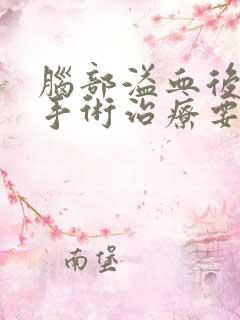 腦部溢血後
手術治療要
南堡